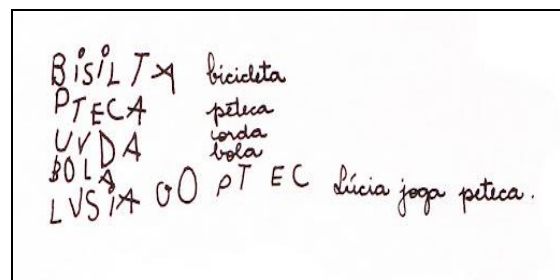 BiSiLTA bicicleta
PTECA peteca
UVDA corda
BOLA bola
LUSiA OO PTEC Lúcia joga peteca.